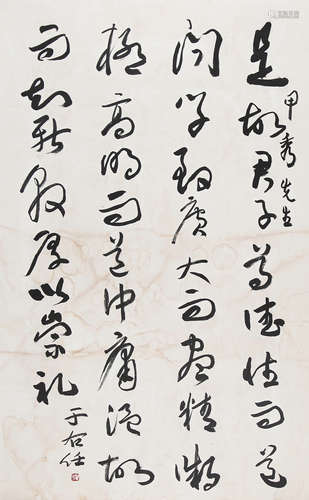 是故君子尊德性而道
問學致廣大而盡精微
極高明而道中庸溫故
而知新敦厚以崇礼
甲秀先生
于右任